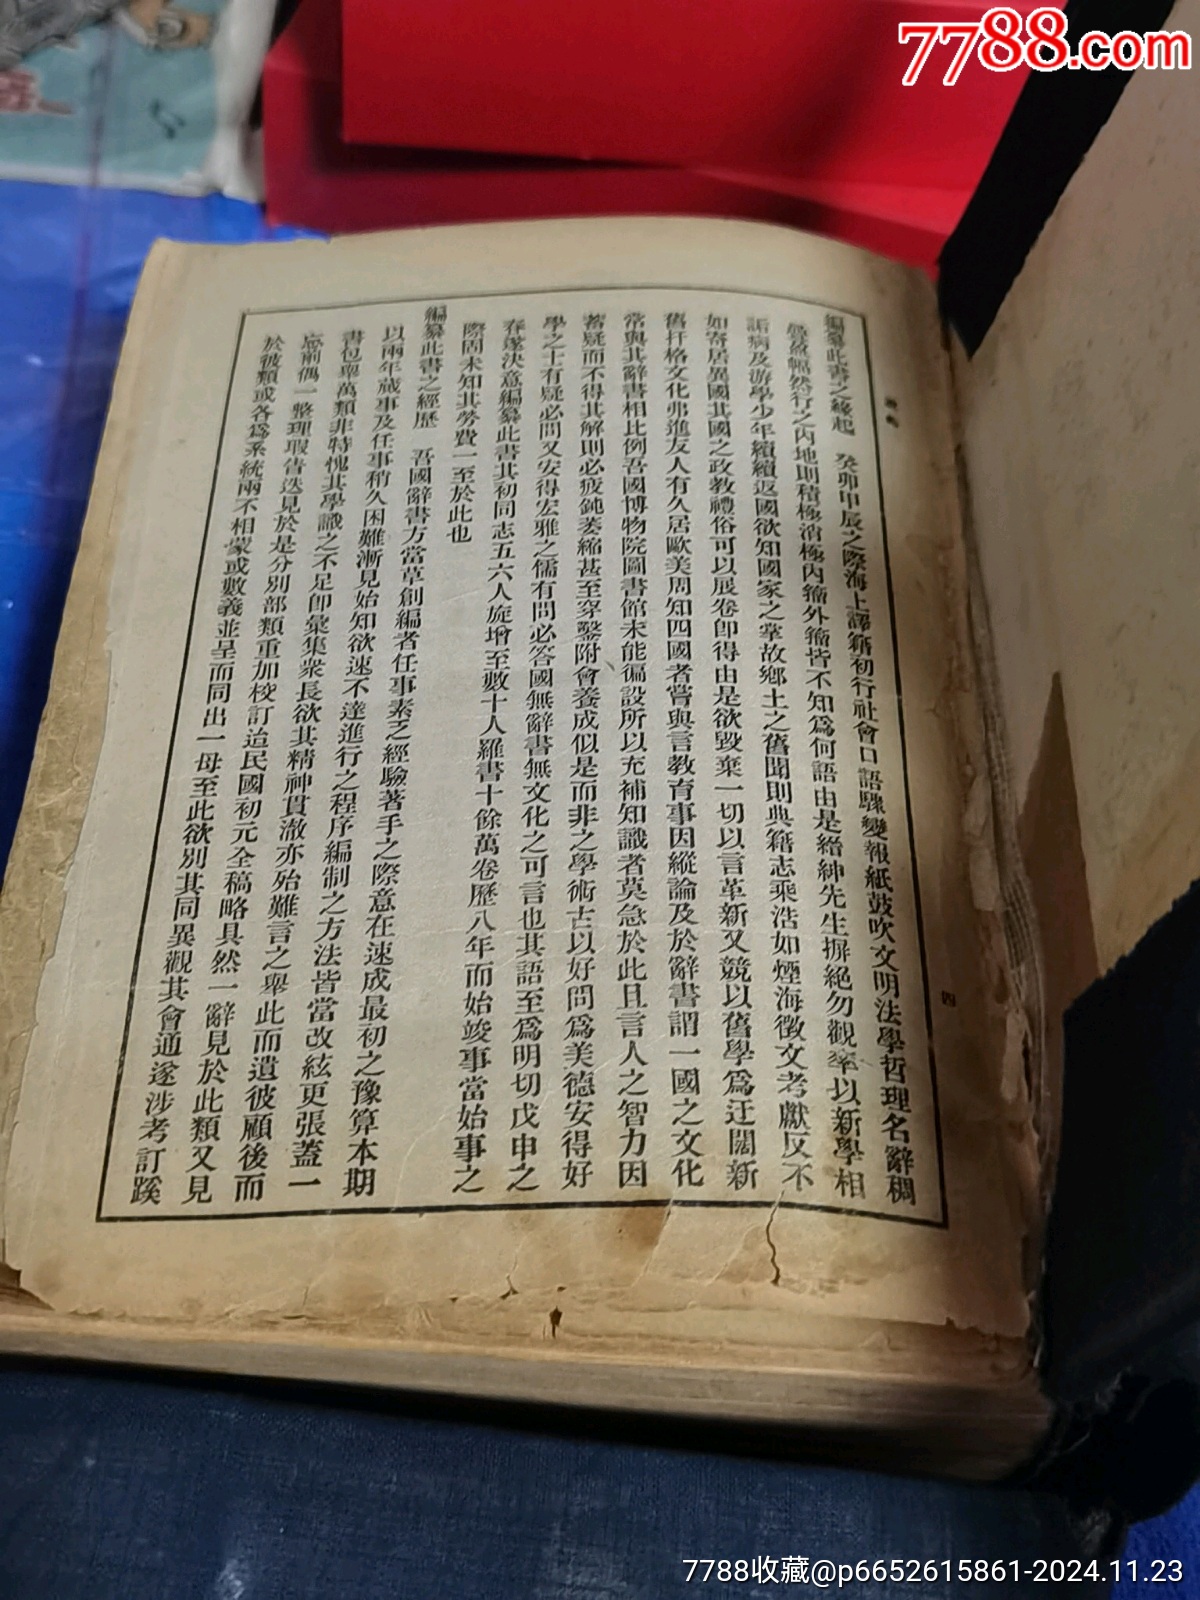 7788.com
四
編纂此書之緣起　癸卯甲辰之際海上譯籍初行社會口語驟變報紙鼓吹文明法學哲理名辭稠
疊盈幅然行之內地則積極消極內籀外籀皆不知爲何語由是縉紳先生摒絕勿觀率以新學相
詬病及游學少年續續返國欲知國家之掌故鄉土之舊聞則典籍志乘浩如煙海徵文考獻反不
如寄居異國其國之政敎禮俗可以展卷卽得由是欲毀棄一切以言革新又競以舊學爲迂闊新
舊扞格文化弗進友人有久居歐美周知四國者嘗與言敎育事因縱論及於辭書謂一國之文化
常與其辭書相比例吾國博物院圖書館未能徧設所以充補知識者莫急於此且言人之智力因
蓄疑而不得其解則必疲鈍萎縮甚至穿鑿附會養成似是而非之學術古以好問爲美德安得好
學之士有疑必問又安得宏雅之儒有問必答國無辭書無文化之可言也其語至爲明切戊申之
春遂決意編纂此書其初同志五六人旋增至數十人羅書十餘萬卷歷八年而始竣事當始事之
際固未知其勞費一至於此也
編纂此書之經歷　吾國辭書方當草創編者任事素乏經驗著手之際意在速成最初之豫算本期
以兩年蕆事及任事稍久困難漸見始知欲速不達進行之程序編制之方法皆當改絃更張蓋一
書包舉萬類非特愧其學識之不足卽彙集衆長欲其精神貫澈亦殆難言之舉此而遺彼顧後而
忘前偶一整理瑕告迭見於是分別部類重加校訂迨民國初元全稿略具然一辭見於此類又見
於彼類或各爲系統兩不相蒙或數義並呈而同出一母至此欲別其同異觀其會通遂涉考訂蹊
7788收藏@p6652615861-2024.11.23